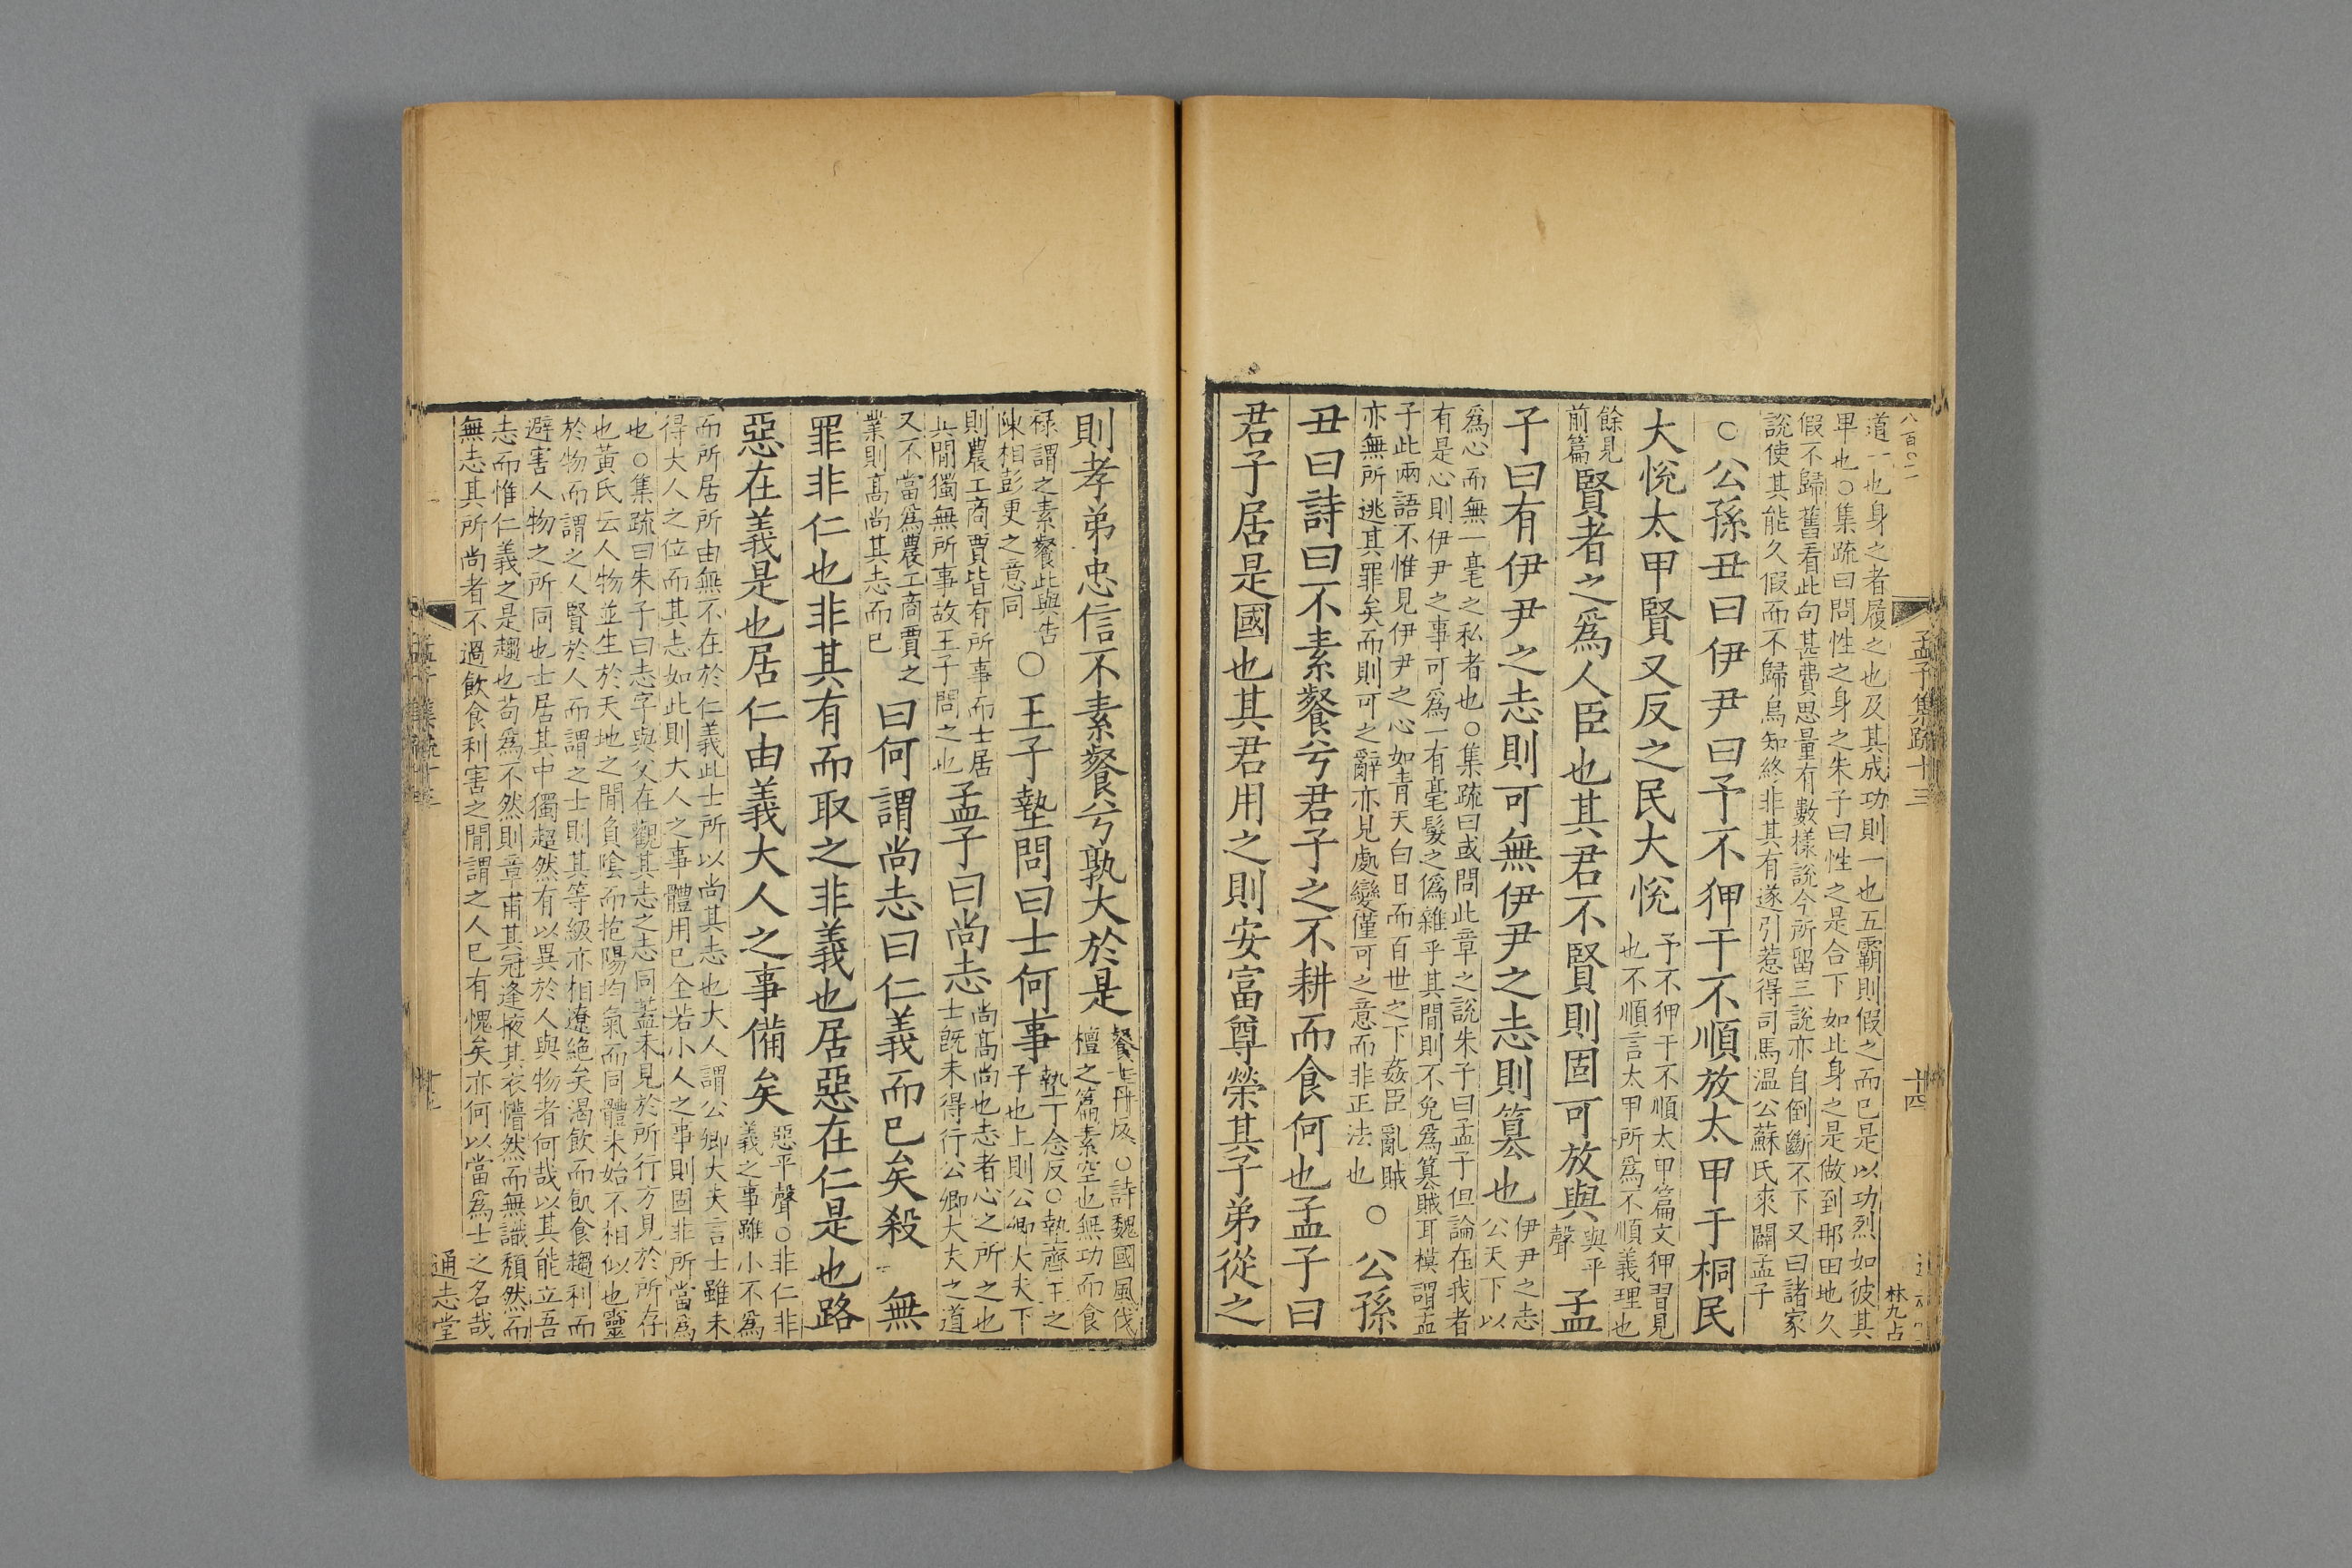 道一也身之者履之也及其成功則一也五霸則假之而已是以功烈如彼其
卑也○集疏曰問性之身之朱子曰性之是合下如此身之是做到那田地久
假不歸舊看此句甚費思量有數樣說今所留三說亦自倒斷不下又曰諸家
說使其能久假而不歸烏知終非其有遂引惹得司馬溫公蘇氏來闢孟子
○公孫丑曰伊尹曰予不狎于不順放太甲于桐民
大悅太甲賢又反之民大悅
予不狎于不順太甲篇文狎習見
也不順言太甲所為不順義理也
餘見
前篇
賢者之爲人臣也其君不賢則固可放與
與平
聲
孟
子曰有伊尹之志則可無伊尹之志則篡也
伊尹之志
公天下以
爲心而無一毫之私者也○集疏曰或問此章之說朱子曰孟子但論在我者
有是心則伊尹之事可爲一有毫髮之僞雜乎其閒則不免爲篡賊耳模謂孟
子此兩語不惟見伊尹之心如青天白日而百世之下姦臣亂賊
亦無所逃其罪矣而則可之辭亦見處變僅可之意而非正法也
○公孫
丑曰詩曰不素餐兮君子之不耕而食何也孟子曰
君子居是國也其君用之則安富尊榮其子弟從之
孟子集疏十三
十四
林九占
則孝弟忠信不素餐兮孰大於是
餐七丹反○詩魏國風伐
檀之篇素空也無功而食
祿謂之素餐此與告
陳相彭更之意同
○王子墊問曰士何事
墊丁念反○墊齊王之
子也上則公卿大夫下
則農工商賈皆有所事而士居
其閒獨無所事故王子問之也
孟子曰尚志
尚高尚也志者心之所之也
士旣未得行公卿大夫之道
又不當爲農工商賈之
業則高尚其志而已
曰何謂尚志曰仁義而已矣殺一無
罪非仁也非其有而取之非義也居惡在仁是也路
惡在義是也居仁由義大人之事備矣
惡平聲○非仁非
義之事雖小不爲
而所居所由無不在於仁義此士所以尚其志也大人謂公卿大夫言士雖未
得大人之位而其志如此則大人之事體用已全若小人之事則固非所當爲
也○集疏曰朱子曰志字與父在觀其志之志同蓋未見於所行方見於所存
也黃氏云人物並生於天地之閒負陰而抱陽均氣而同體未始不相似也靈
於物而謂之人賢於人而謂之士則其等級亦相遼絕矣渴飲而飢食趨利而
避害人物之所同也士居其中獨超然有以異於人與物者何哉以其能立吾
志而惟仁義之是趨也苟爲不然則章甫其冠逢掖其衣懵然而無識頹然而
無志其所尚者不過飲食利害之閒謂之人已有愧矣亦何以當爲士之名哉
通志堂